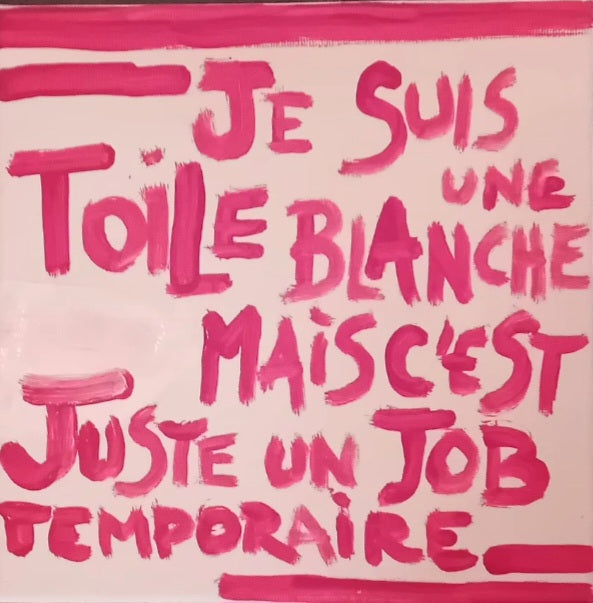 JE SUIS
UNE
TOiLE BLANCHE
MAiS C'EST
JUSTE UN JOB
TEMPORAiRE